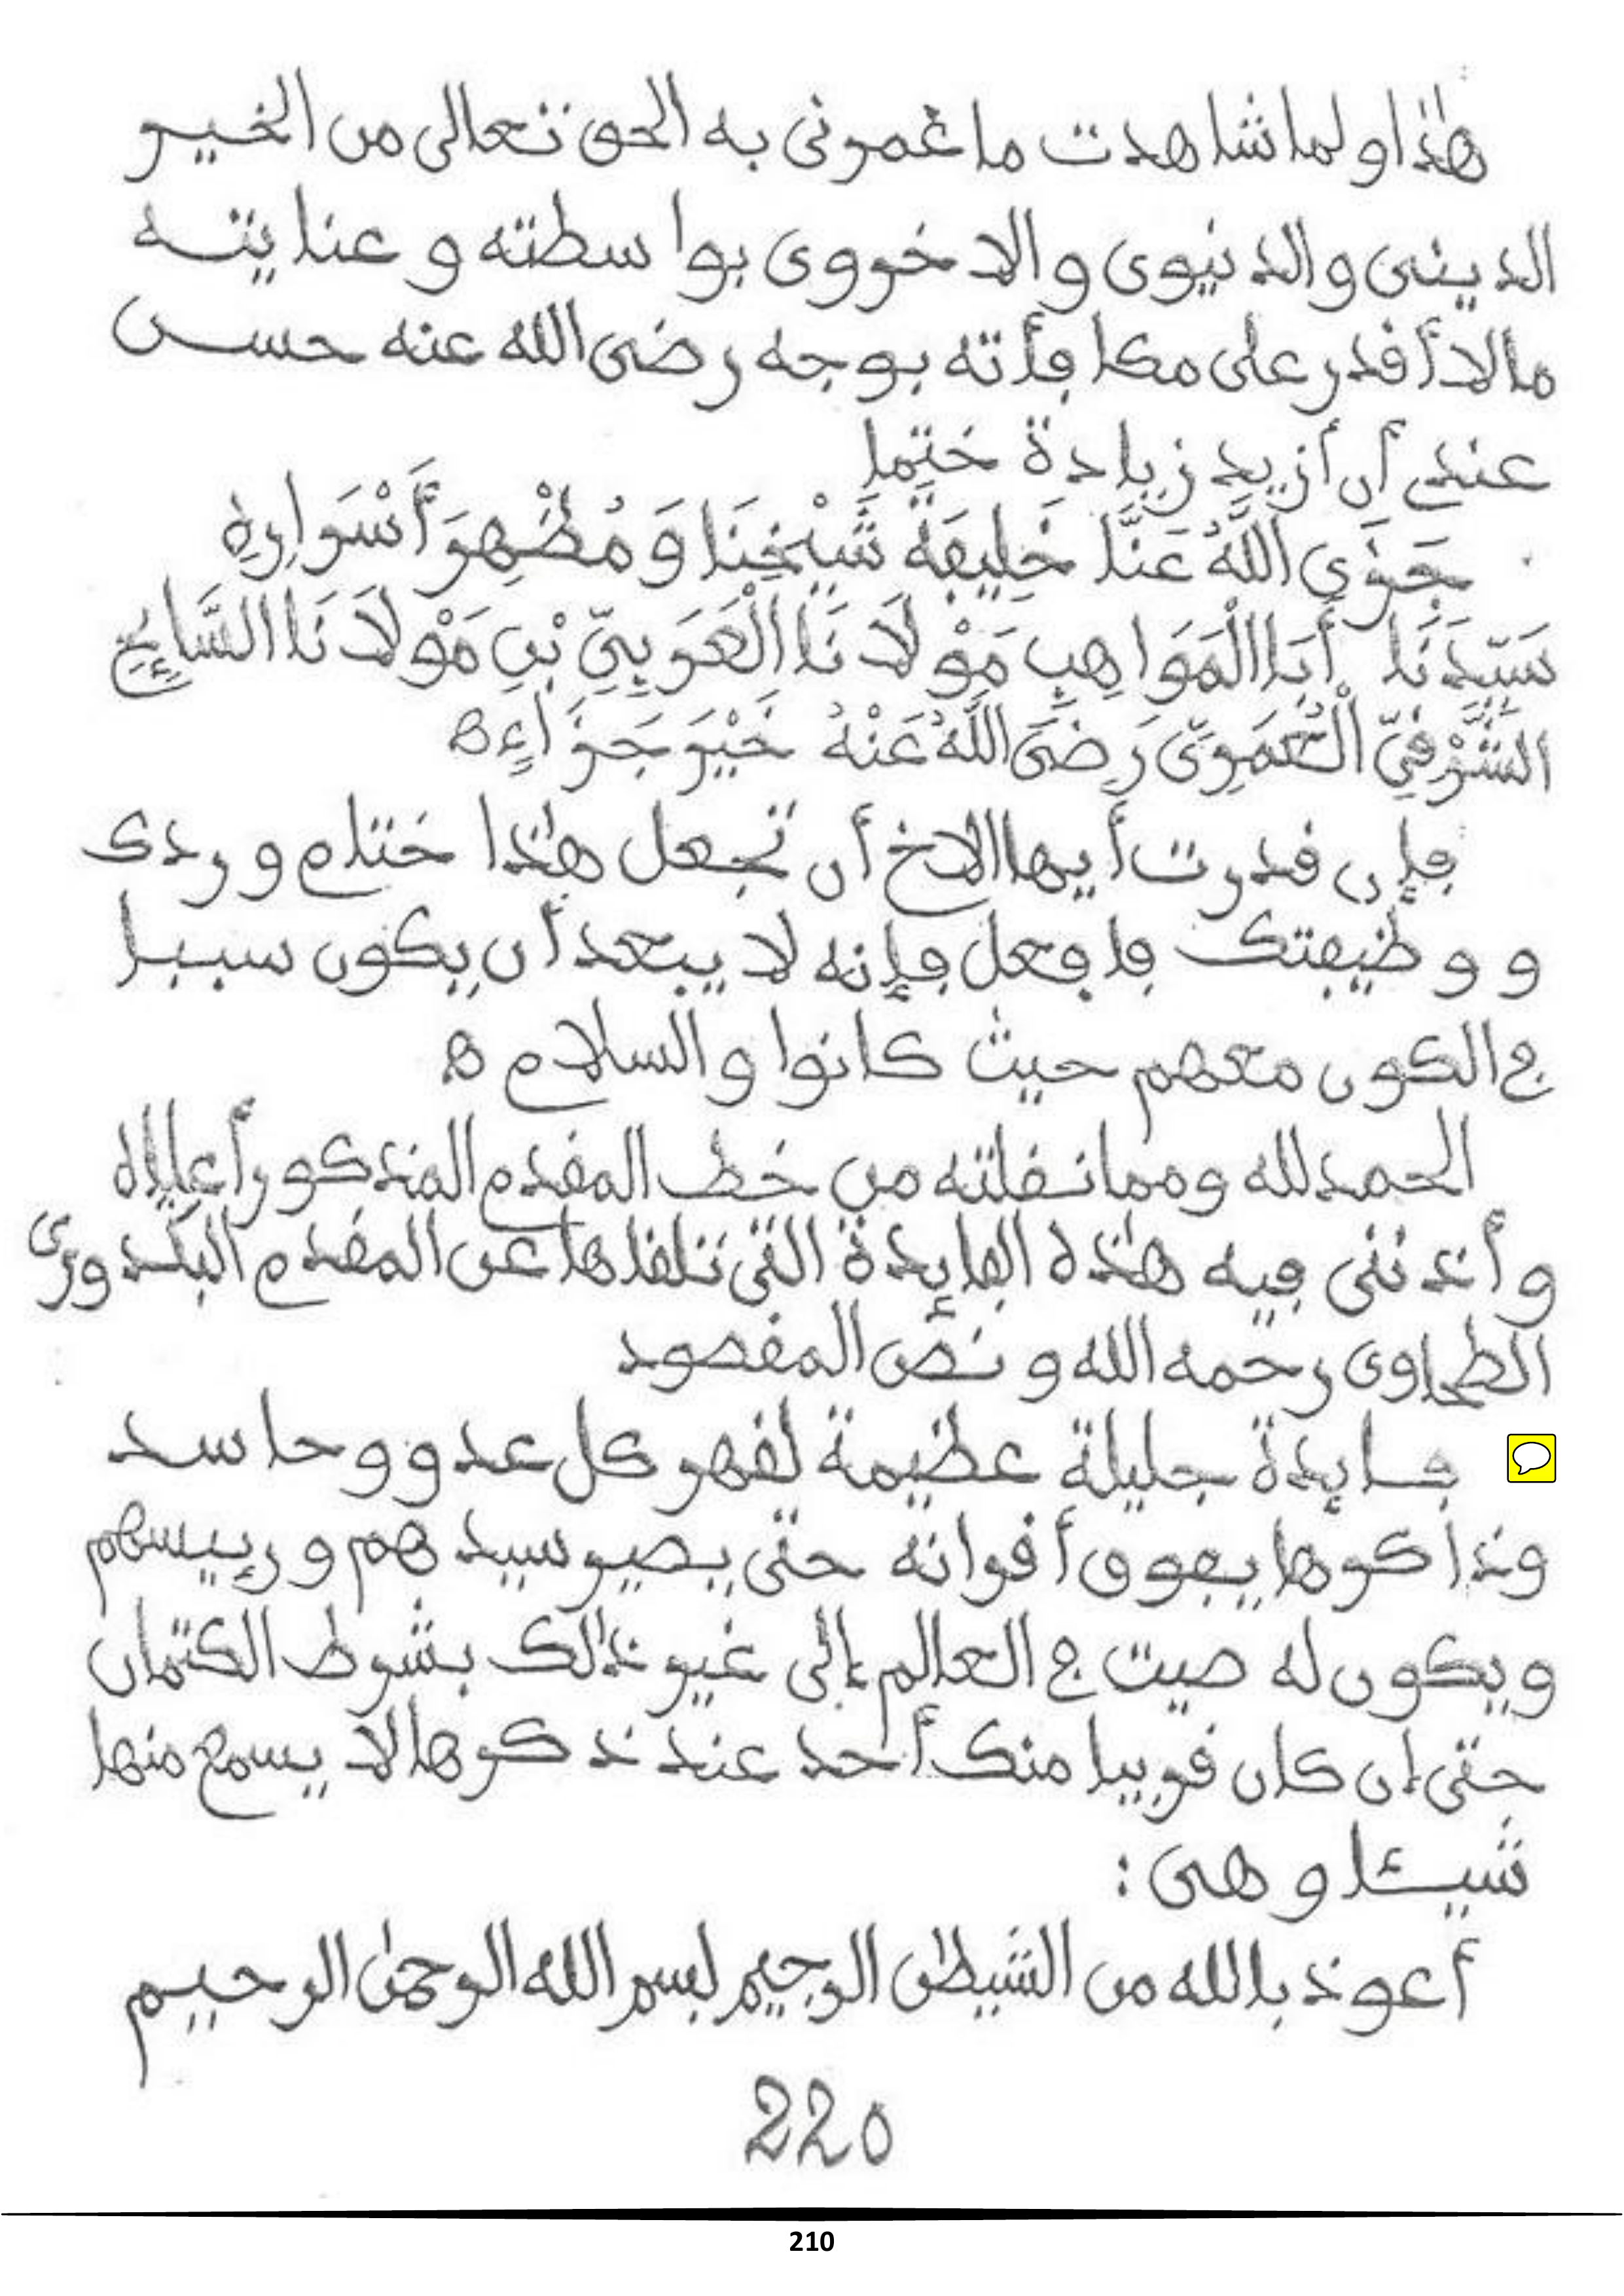 هذا ولما شاهدت ما غمرنى به الحق تعالى من الخيـر
الدينى والدنيوى والاخروى بواسطته وعنايتـه
مالا أقدر على مكافأته بوجه رضى الله عنه حسـن
عندى أن أزيد زيادة ختمها
جَزَى اللَّهُ عَنَّا خَلِيفَةَ شَيْخِنَا وَمُظْهِرَ أَسْرَارِهِ
سَيِّدَنَا أَبَا الْمَوَاهِبِ مَوْلَانَا الْعَرَبِيِّ بْنِ مَوْلَانَا السَّايِحِ
الشَّرْقِيِّ الْعُمَرِيِّ رَضِىَ اللَّهُ عَنْهُ خَيْرَ جَزَاءٍ ه
فإن قدرت أيها الاخ أن تجعل هذا ختام وردك
ووظيفتك فافعل فإنه لا يبعد أن يكون سببا
فى الكون معهم حيث كانوا والسلام ه
الحمد لله ومما نقلته من خط المقدم المذكور أعلاه
وأذننى فيه هذه الفايدة التى تلقاها عن المقدم البكدورى
الطحاوى رحمه الله ونص المقصود
فـايدة جليلة عظيمة لقهر كل عدو وحاسد
وذاكرها يفوق أقرانه حتى يصير سيدهم ورييسهم
ويكون له صيت فى العالم إلى غير ذالك بشرط الكتمان
حتى إن كان قريبا منك أحد عند ذكرها لا يسمع منها
شيـئا وهى :
أعوذ بالله من الشيطٰن الرجيم بسم الله الرحمٰن الرحيـم
220
210